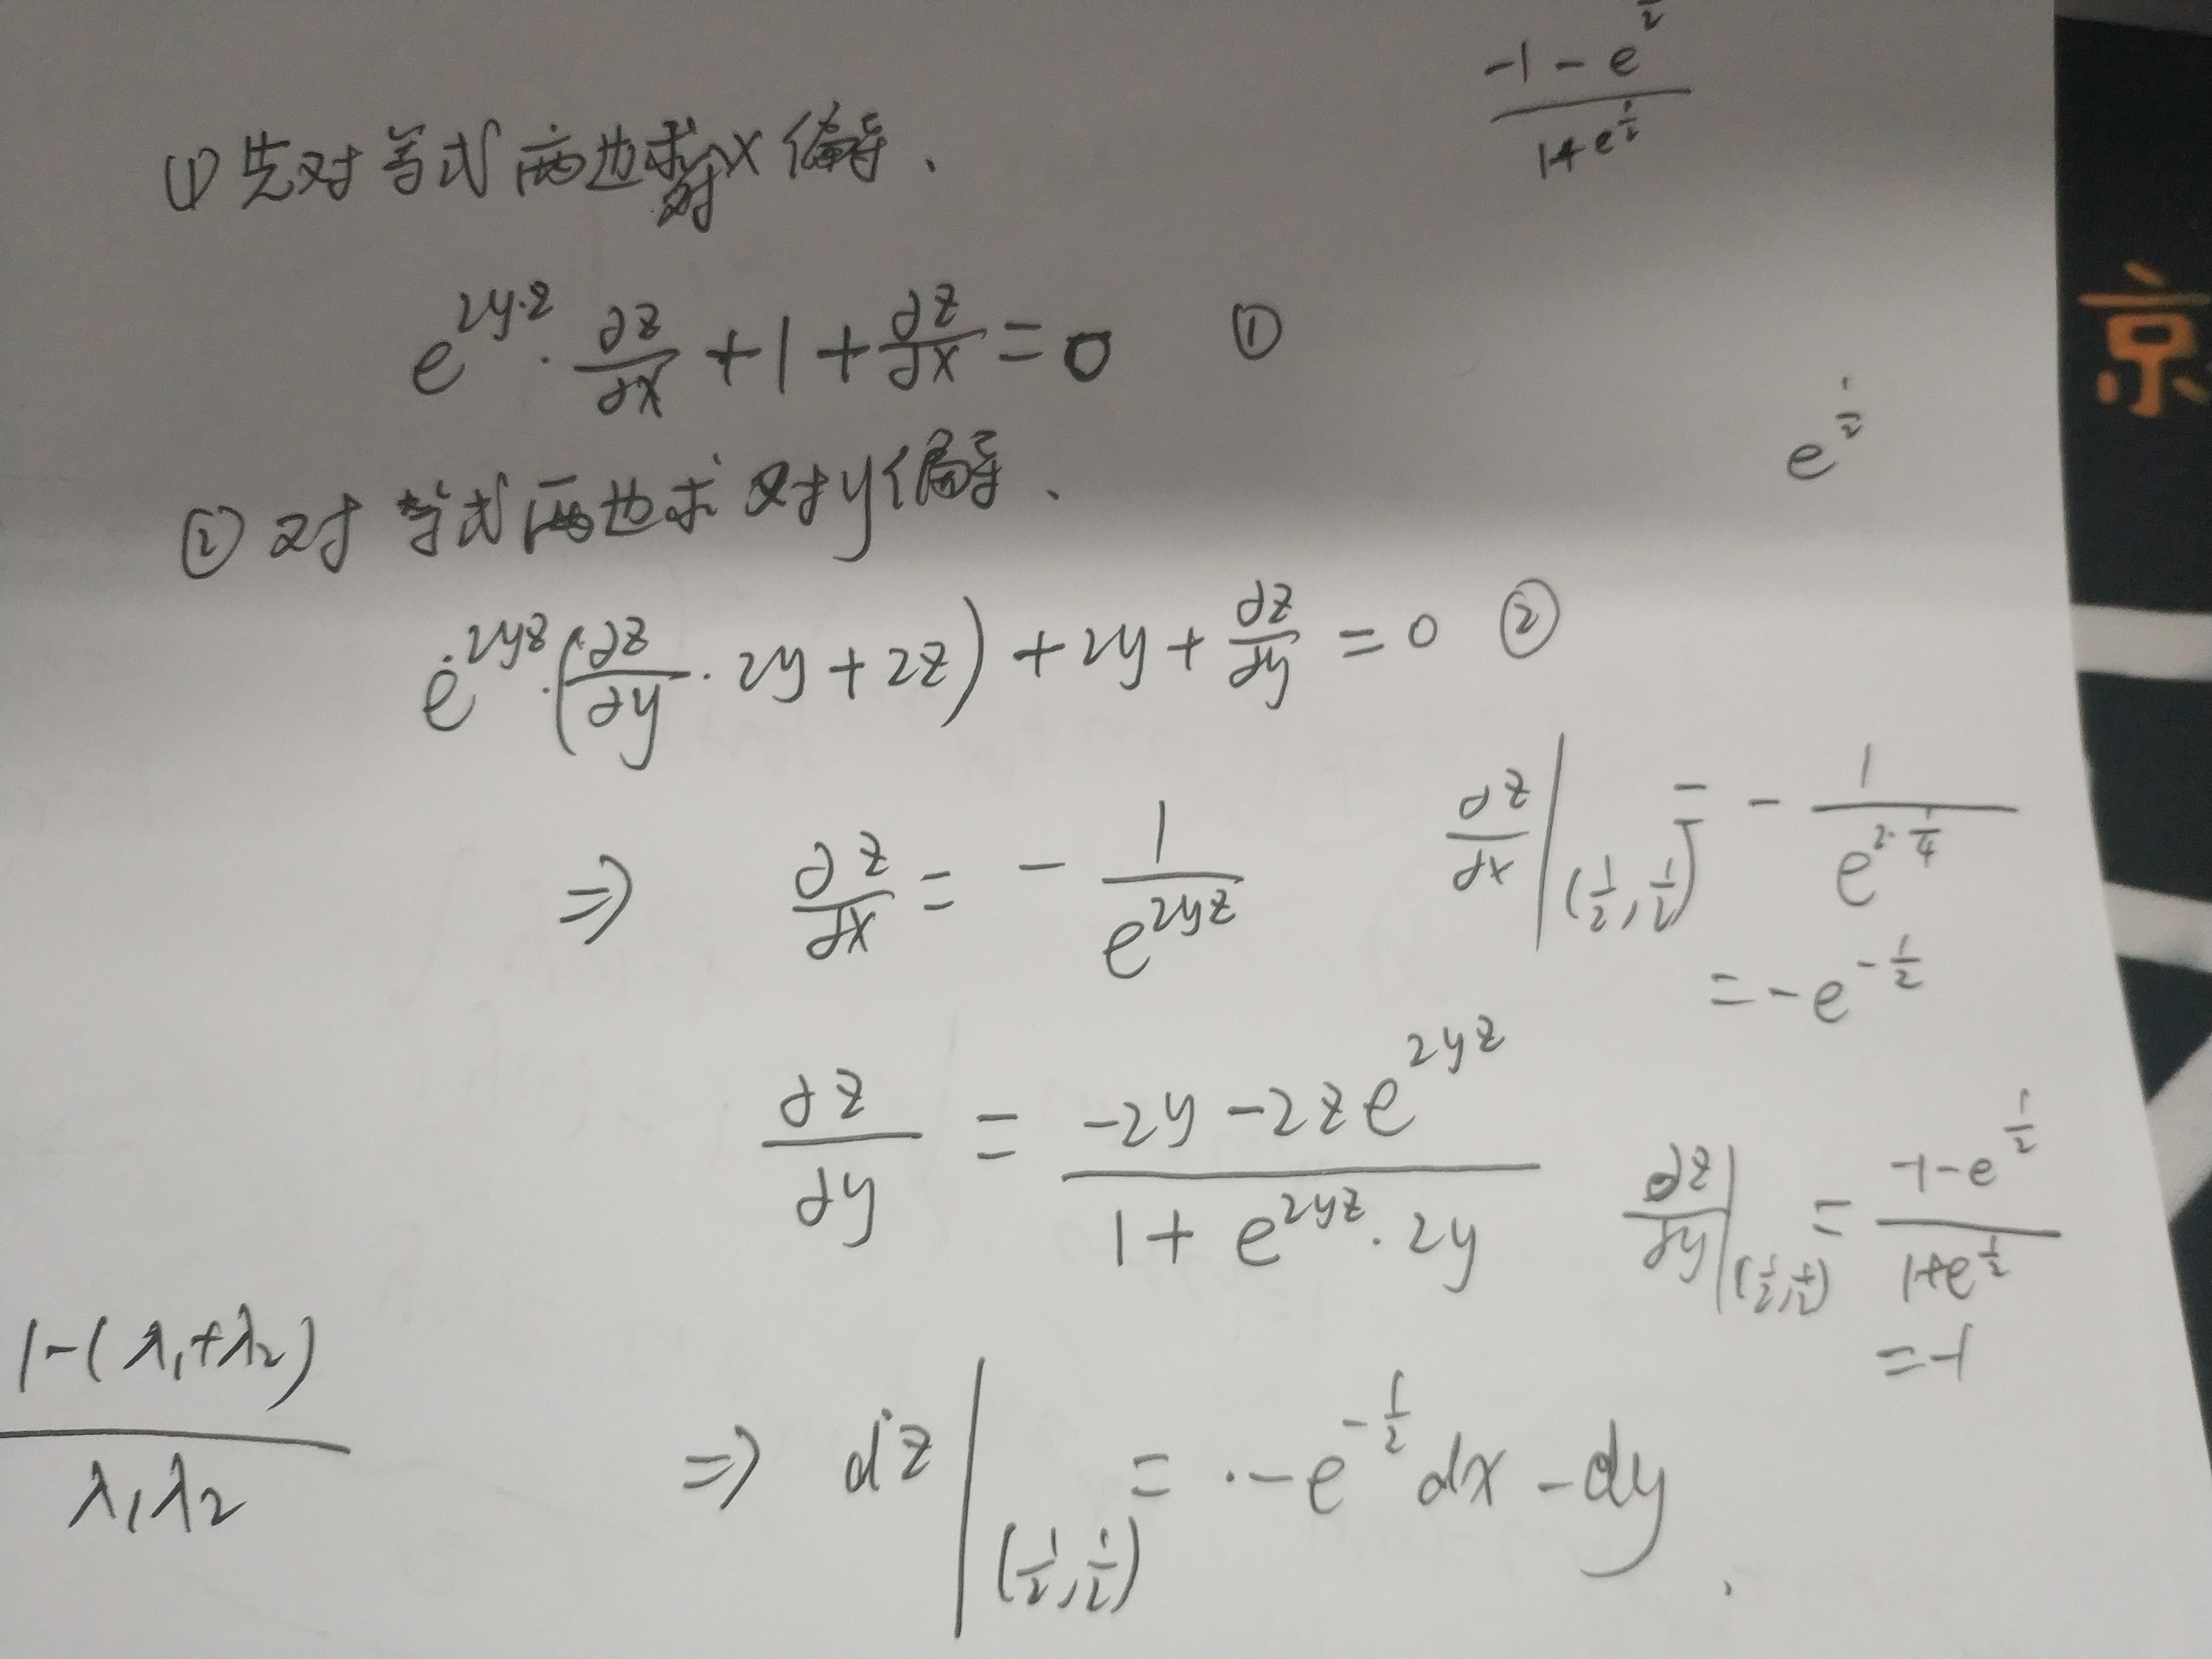 -1-e^{\frac{1}{2}} / 1+e^{\frac{1}{2}}
(1) 先对等式两边求对x偏导、
e^{2y·z}·\frac{∂z}{∂x}+1+\frac{∂z}{∂x}=0 ①
京
e^{\frac{1}{2}}
(2) 对等式两边求对y偏导、
e^{2yz}·(\frac{∂z}{∂y}·2y+2z)+2y+\frac{∂z}{∂y}=0 ②
⇒ \frac{∂z}{∂x}=-\frac{1}{e^{2yz}}
\frac{∂z}{∂x}|_{(\frac{1}{2},\frac{1}{2})}=-\frac{1}{e^{2·\frac{1}{4}}}
=-e^{-\frac{1}{2}}
\frac{∂z}{∂y}=\frac{-2y-2ze^{2yz}}{1+e^{2yz}·2y}
\frac{∂z}{∂y}|_{(\frac{1}{2},\frac{1}{2})}=\frac{-1-e^{\frac{1}{2}}}{1+e^{\frac{1}{2}}}
=-1
\frac{1-(λ_1+λ_2)}{λ_1λ_2}
⇒ dz|_{(\frac{1}{2},\frac{1}{2})}=-e^{-\frac{1}{2}}dx-dy